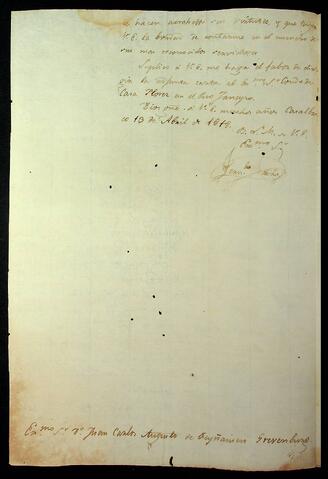 se hacen acrehedor sus virtudes, y que tenga
V.E. la bondad de contarme en el numero de
sus mas reconocidos servidores.
Suplico á V.E. me haga el fabor de diri-
gir la adjunta carta al Exmo Sr Conde de
Casa Flores en el Rio Janeyro.
Dios gue. á V.E. muchos años. Cavalla-
13 de Abril de 1819.
B. L. M. de V.E.
Exmo Sr
Exmo Sr Dn Juan Carlos Augusto de Oeynhausen Grevenburg